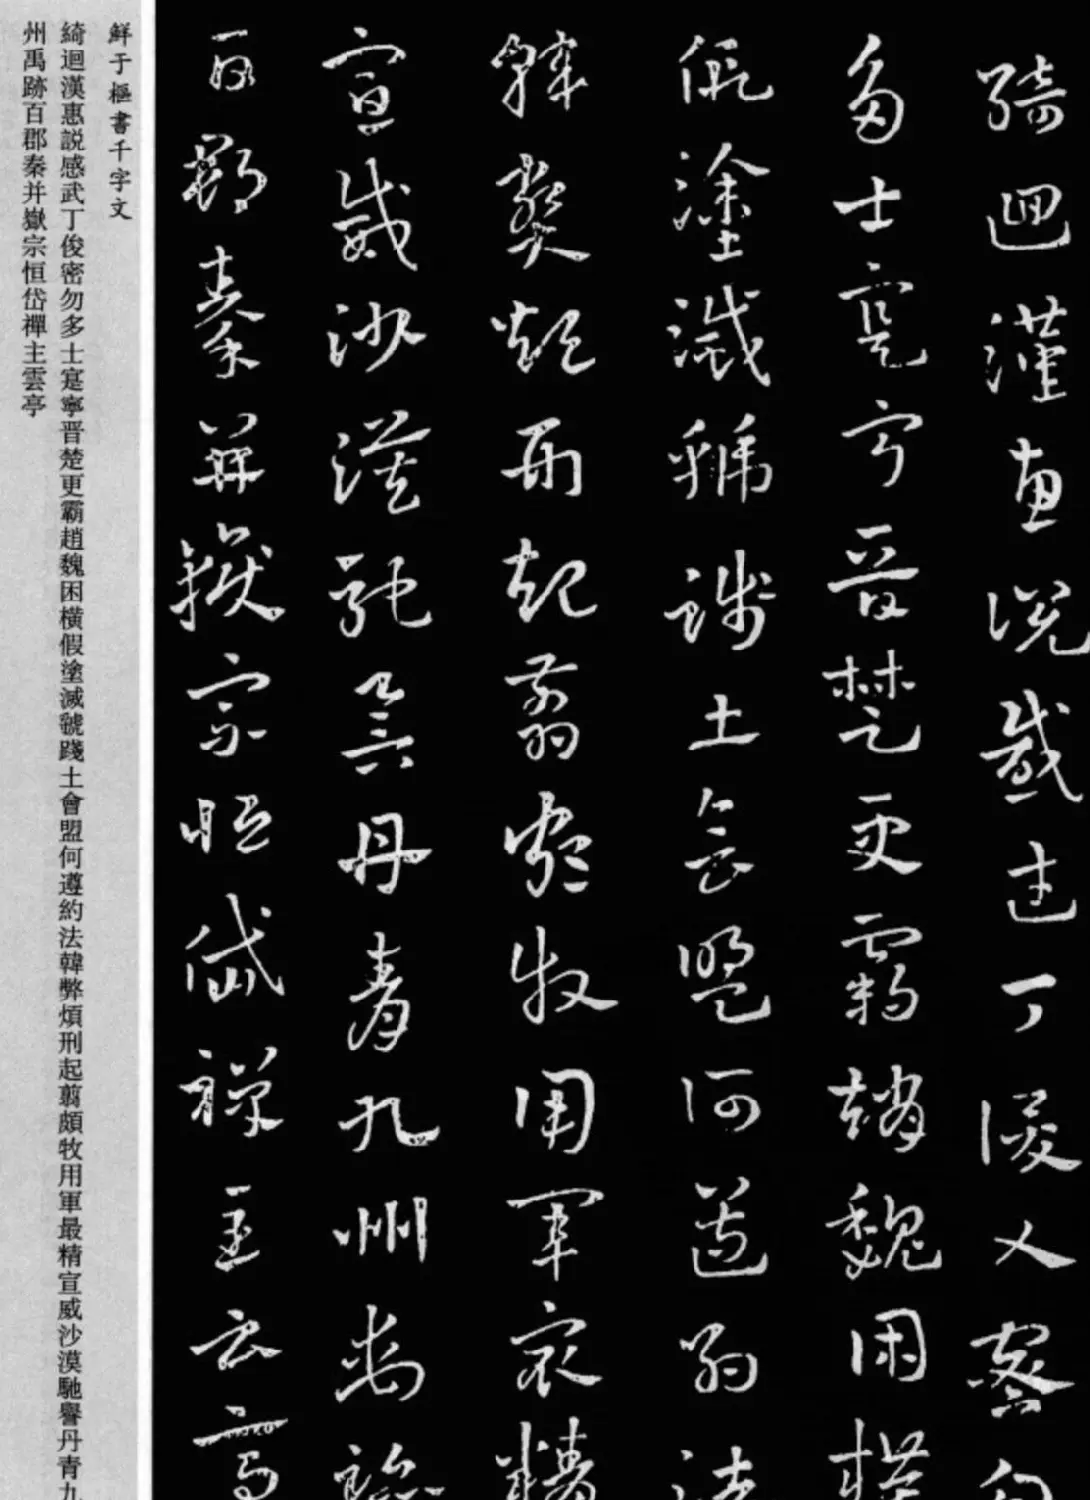 綺迴漢惠説感武丁俊乂密勿
多士寔寧晋楚更霸趙魏困横
假塗滅虢踐土會盟何遵約法
韓弊煩刑起翦頗牧用軍最精
宣威沙漠馳譽丹青九州禹跡
百郡秦并嶽宗恒岱禪主云亭
鮮于樞書千字文
綺迴漢惠説感武丁俊密勿多士寔寧晋楚更霸趙魏困横假塗滅虢踐土會盟何遵約法韓弊煩刑起翦頗牧用軍最精宣威沙漠馳譽丹青九
州禹跡百郡秦并嶽宗恒岱禪主雲亭